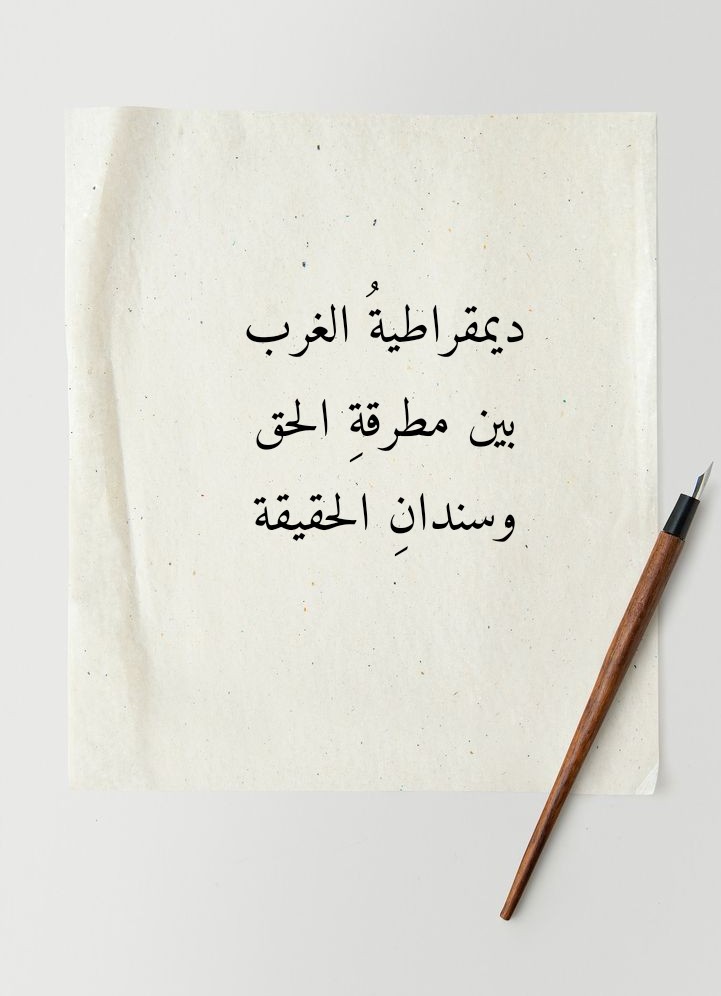 ديمقراطيةُ الغرب
بين مطرقةِ الحق
وسندانِ الحقيقة